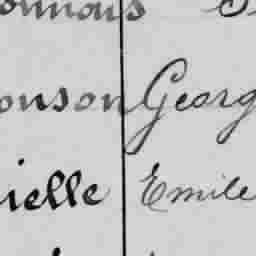 onnais
onson Georg
ielle Emile